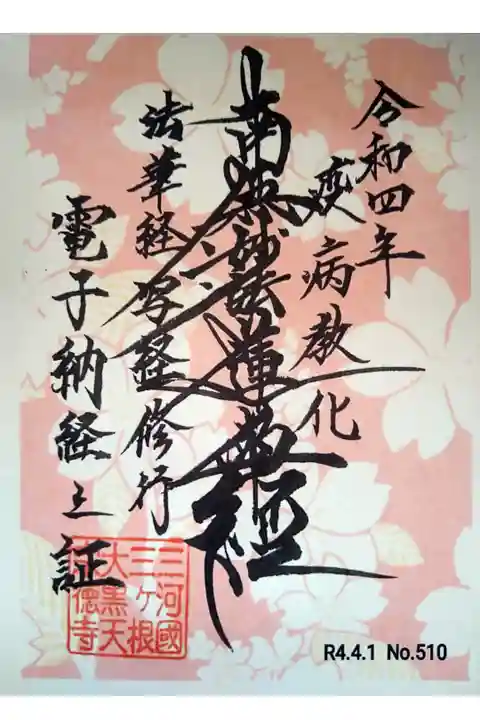 令和四年
疫病教化
南無妙法蓮華經
法華経写経修行
電子納経之証
三河國
三ヶ根
大黒天
徳寺
R4.4.1 No.510